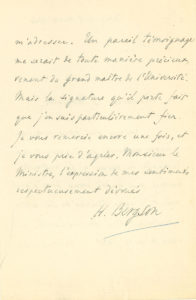 m'adresser. Un pareil témoignage
me serait de toute manière précieux
venant du grand maître de l'Université.
Mais la signature qu'il porte fait
que j'en suis particulièrement fier.
Je vous remercie encore une fois, et
je vous prie d'agréer, Monsieur le
Ministre, l'expression de mes sentiments
respectueusement dévoués
H. Bergson